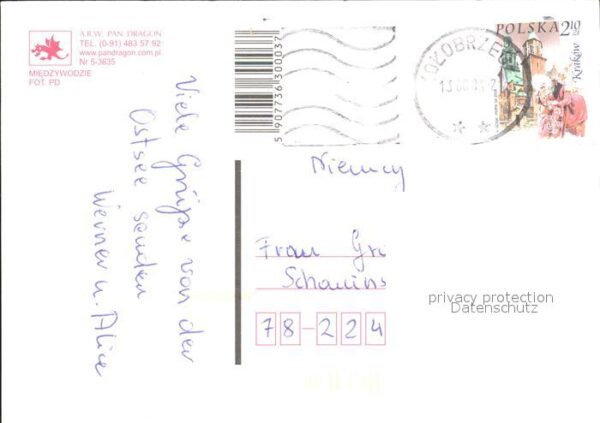 A.R.W. PAN DRAGON
TEL. (0-91) 483 57 92
www.pandragon.com.pl
Nr 5-3635
MIĘDZYWODZIE
FOT. PD
5 907736 300037
POLSKA 2,10
Kraków
KOŁOBRZEG
Viele Grüße von der
Ostsee senden
Werner u. Alice
Niemcy
Frau Gr
Schauins
78-224
privacy protection
Datenschutz